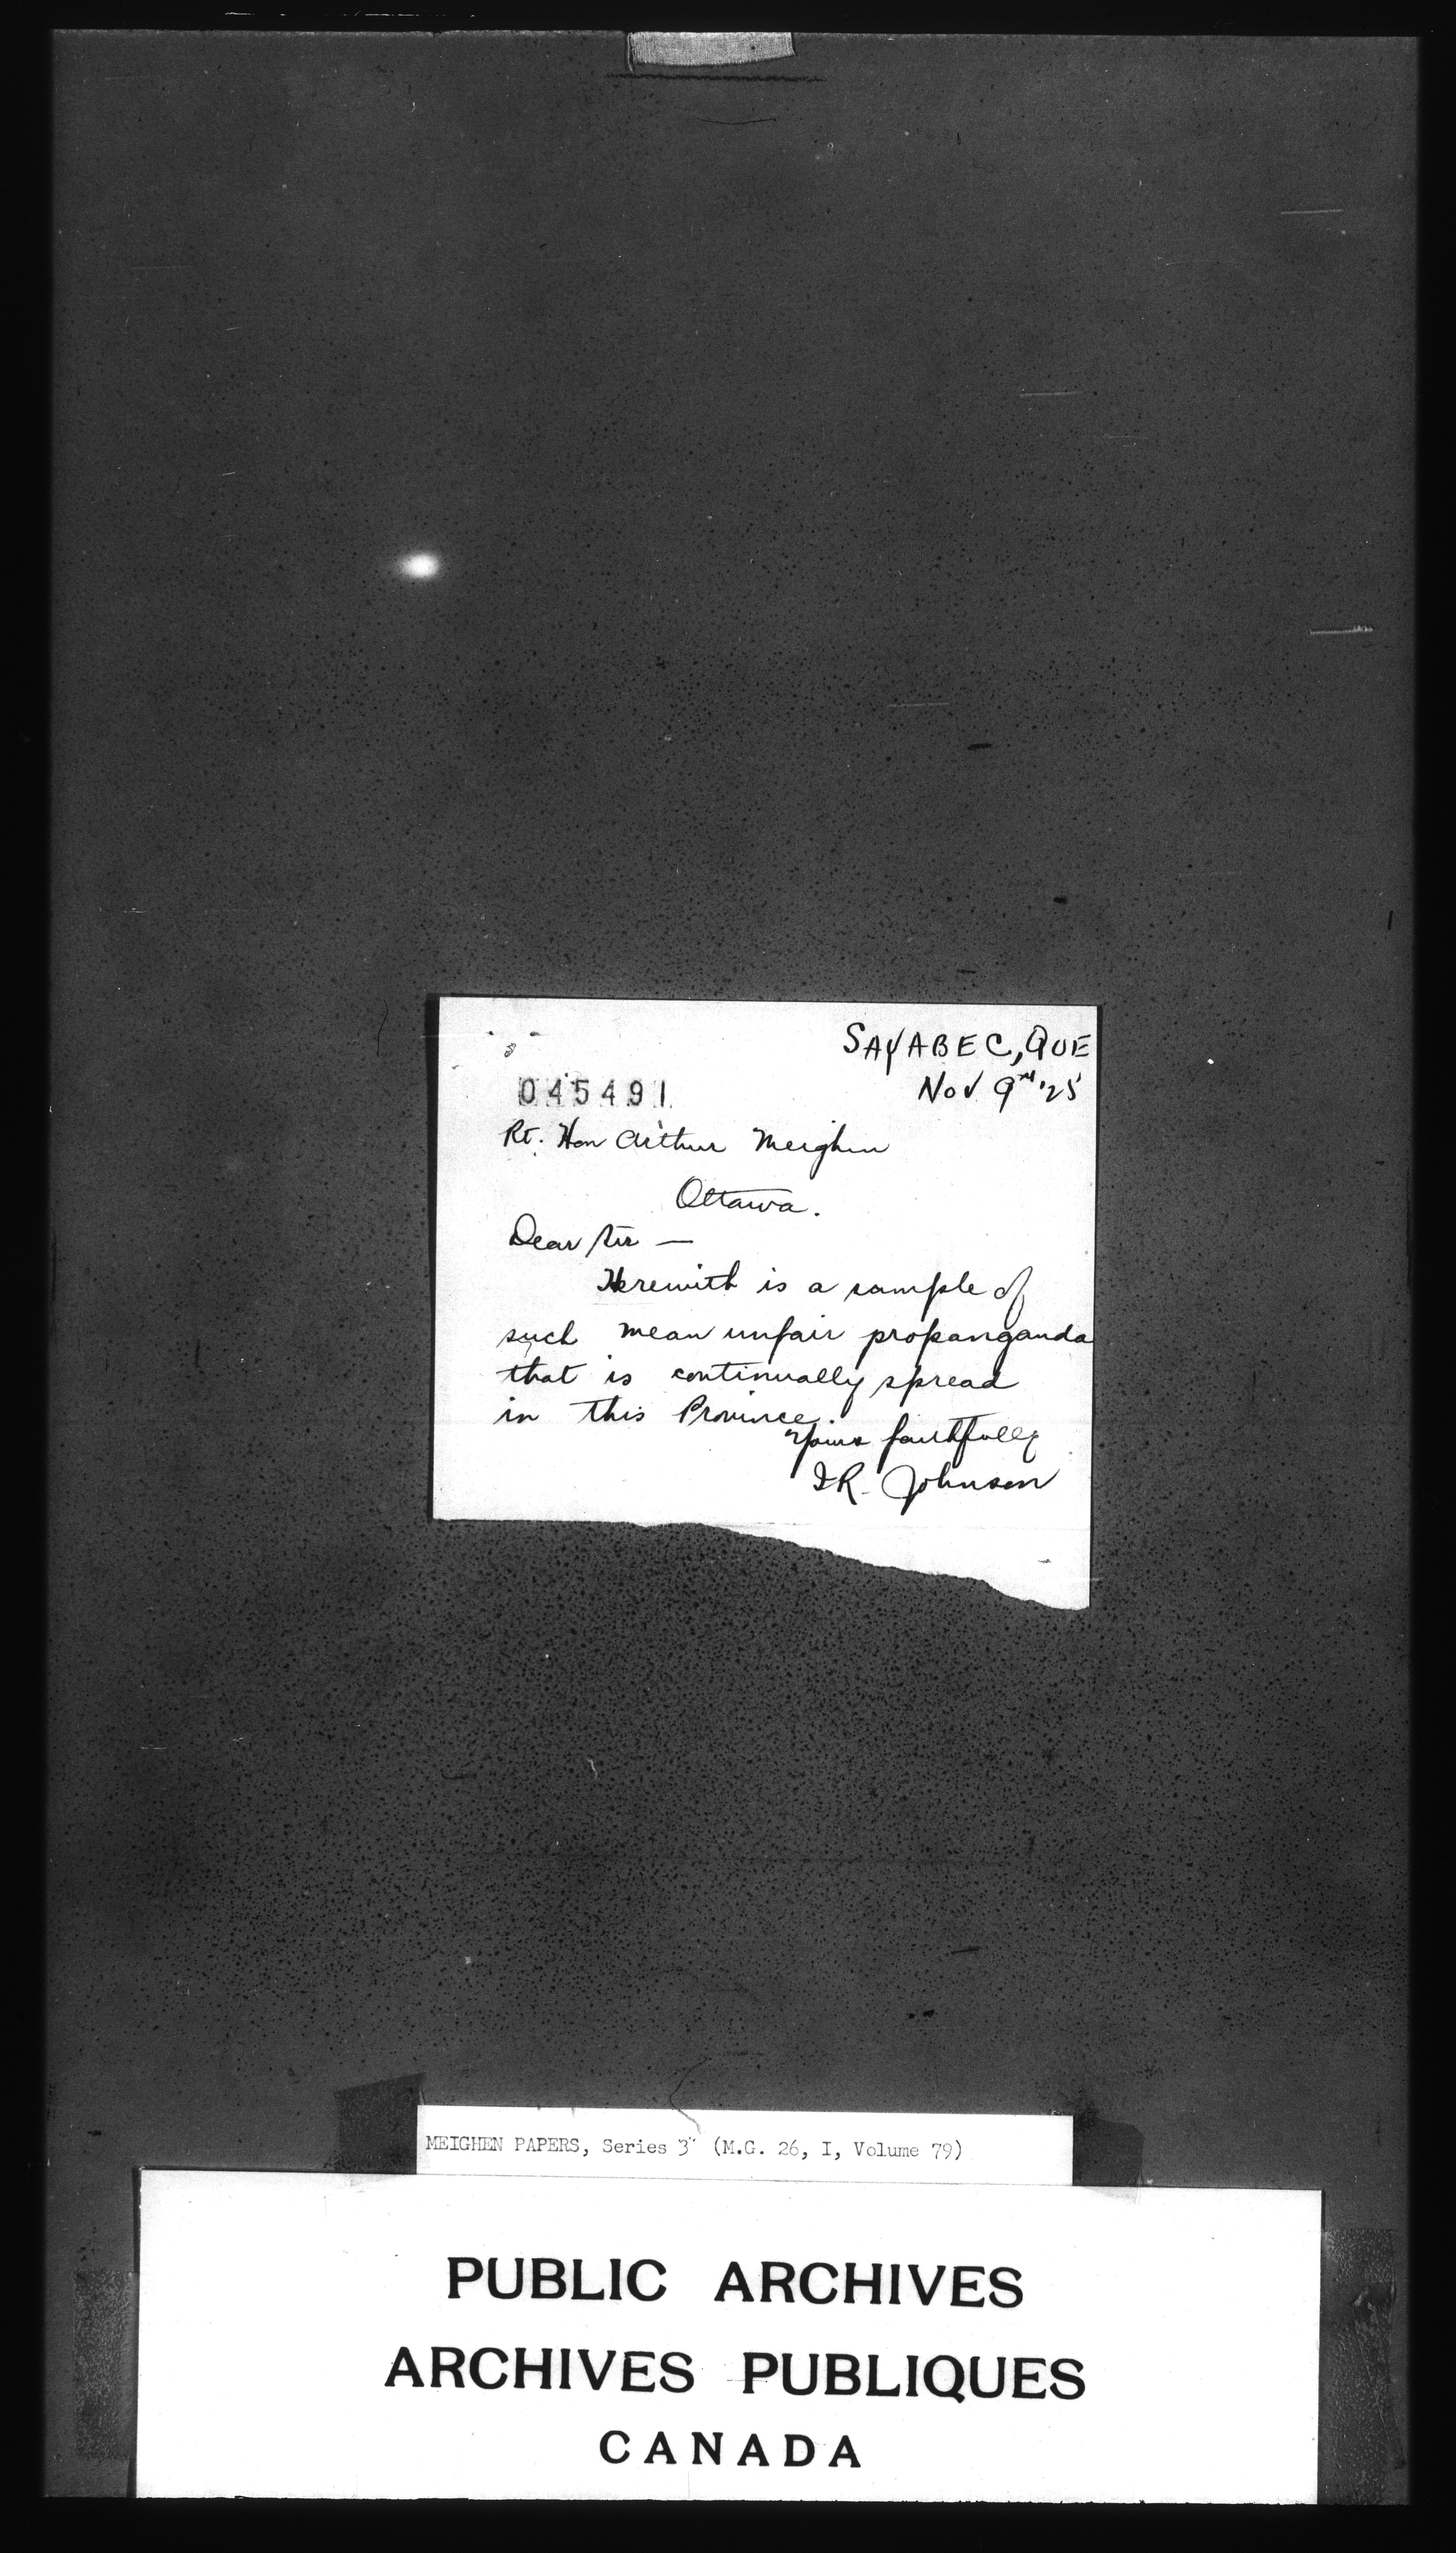 SAYABEC, QUE
Nov 9th '25
045491
Rt. Hon Arthur Meighen
Ottawa.
Dear Sir —
Herewith is a sample of
such mean unfair propanganda
that is continually spread
in this Province.
Yours faithfully
J.R. Johnson
MEIGHEN PAPERS, Series 3 (M.G. 26, I, Volume 79)
PUBLIC ARCHIVES
ARCHIVES PUBLIQUES
CANADA